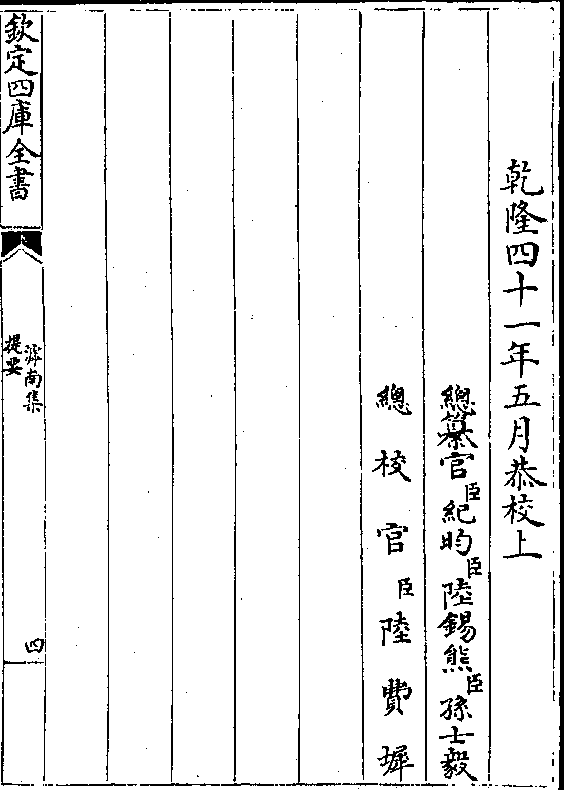 乾隆四十一年五月恭校上
總纂官臣紀昀臣陸錫熊臣孫士毅
總校官臣陸費墀
欽定四庫全書
滹南集
提要
四